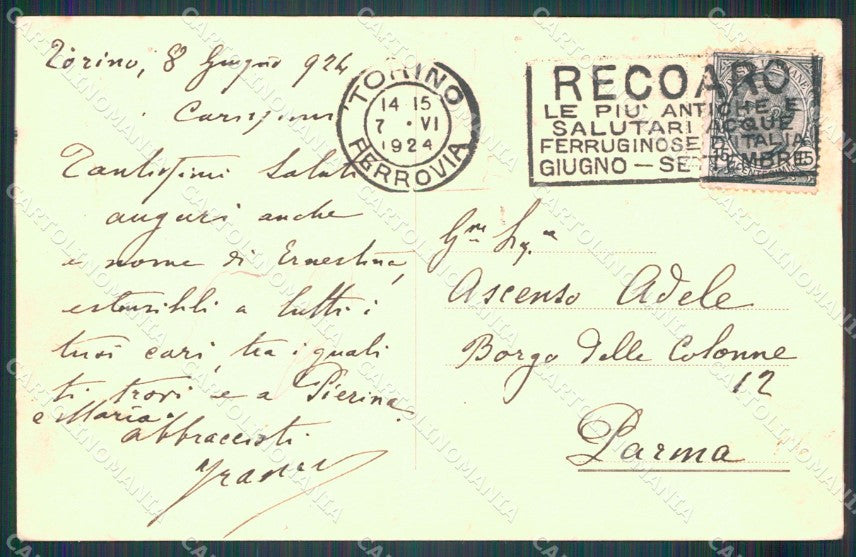 Torino, 8 Giugno 924
Carissima
Tantissimi Saluti
auguri anche
a nome di Ernestina,
estensibili a tutti i
tuoi cari, tra i quali
ti trovi e a Pierina
e Maria.
abbraccioti
TORINO
14 15
7 · VI
1924
FERROVIA
RECOARO
LE PIU' ANTICHE E
SALUTARI ACQUE
FERRUGINOSE D'ITALIA
GIUGNO - SETTEMBRE
Ascenso Adele
Borgo delle Colonne
12
Parma
CARTOLINOMANIA